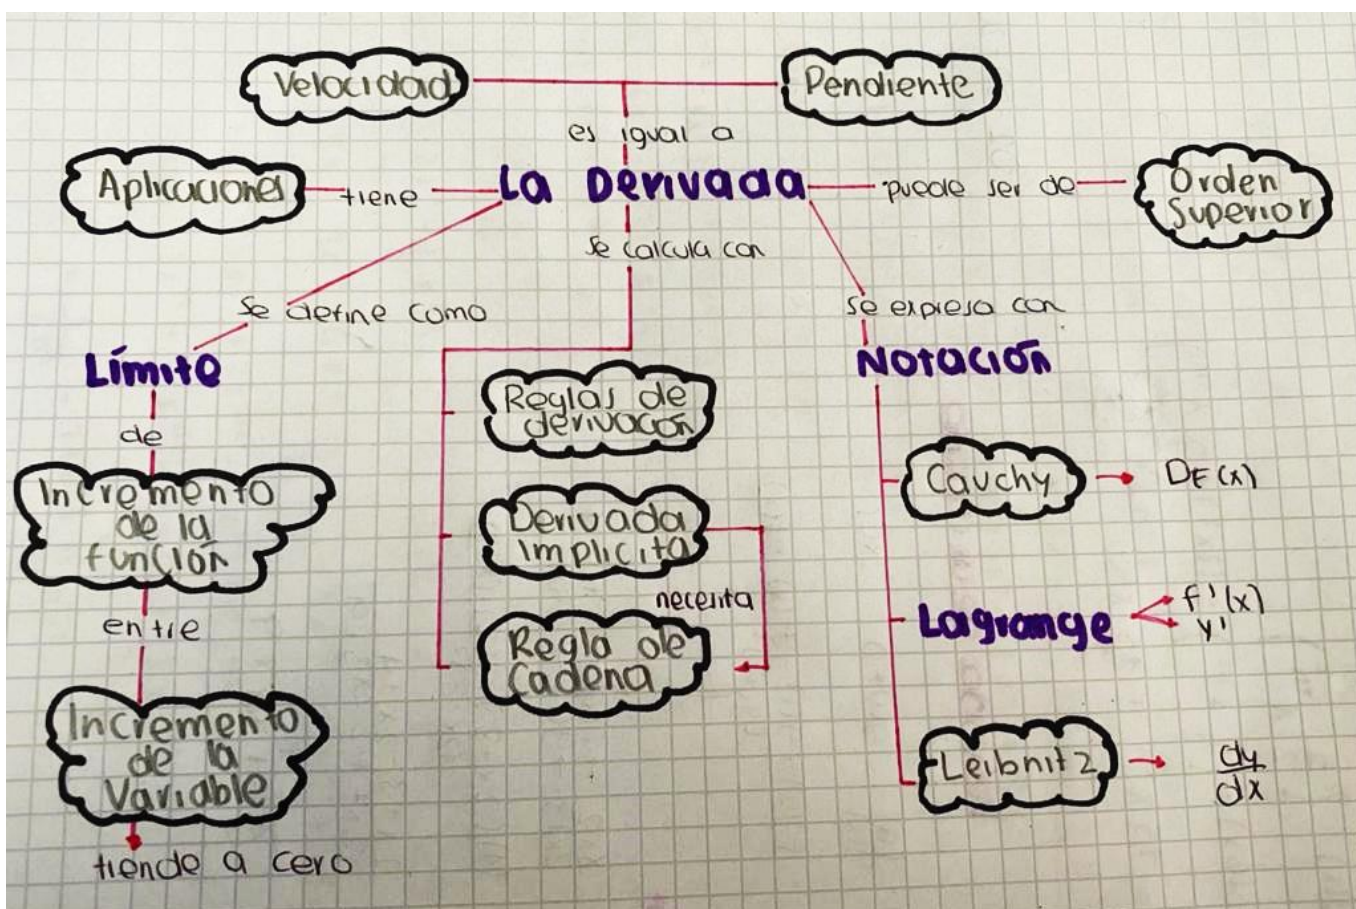 Velocidad
Pendiente
es igual a
Aplicaciones
tiene
La Derivada
puede ser de
Orden
Superior
se calcula con
Se define como
se expresa con
Límite
Notación
de
Incremento
de la
función
entre
Incremento
de la
Variable
tiende a cero
Reglas de
derivacón
Derivada
implicita
necesita
Regla de
Cadena
Cauchy
DF(x)
Lagrange
f'(x)
y'
Leibnitz
dy
dx